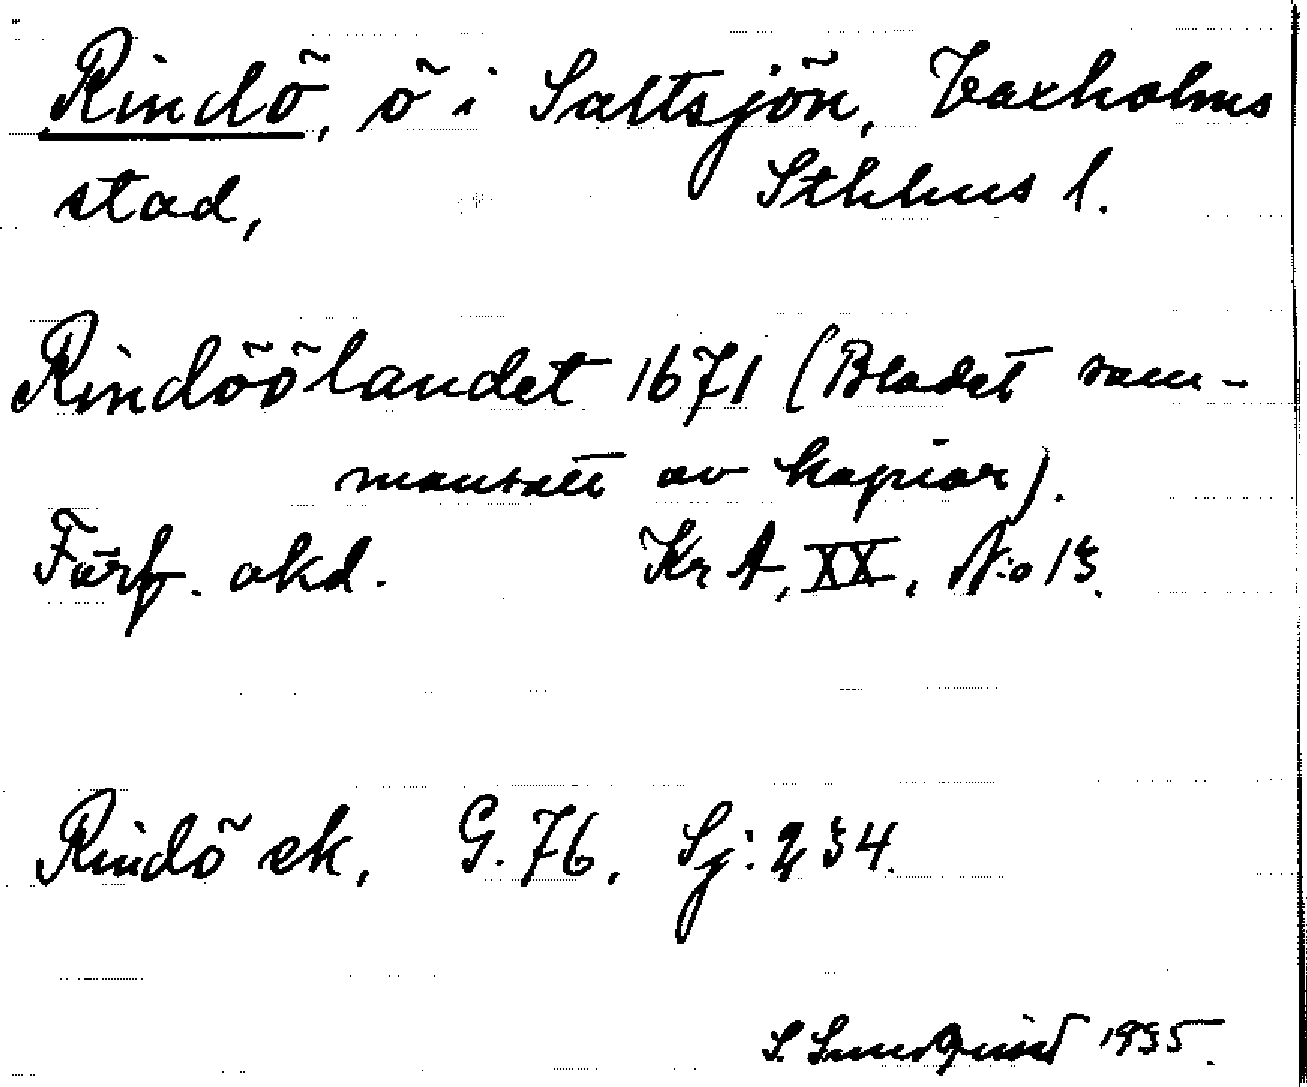 Rindö, ö i Saltsjön, Vaxholms
stad, Sthlms l.
Rindöölandet 1671 (Bladet sam-
mansatt av kopior).
Förf. okd. KrA, XX, No 13.
Rindö ek, G. 76, Sj: 234.
S. Lundquist 1935.